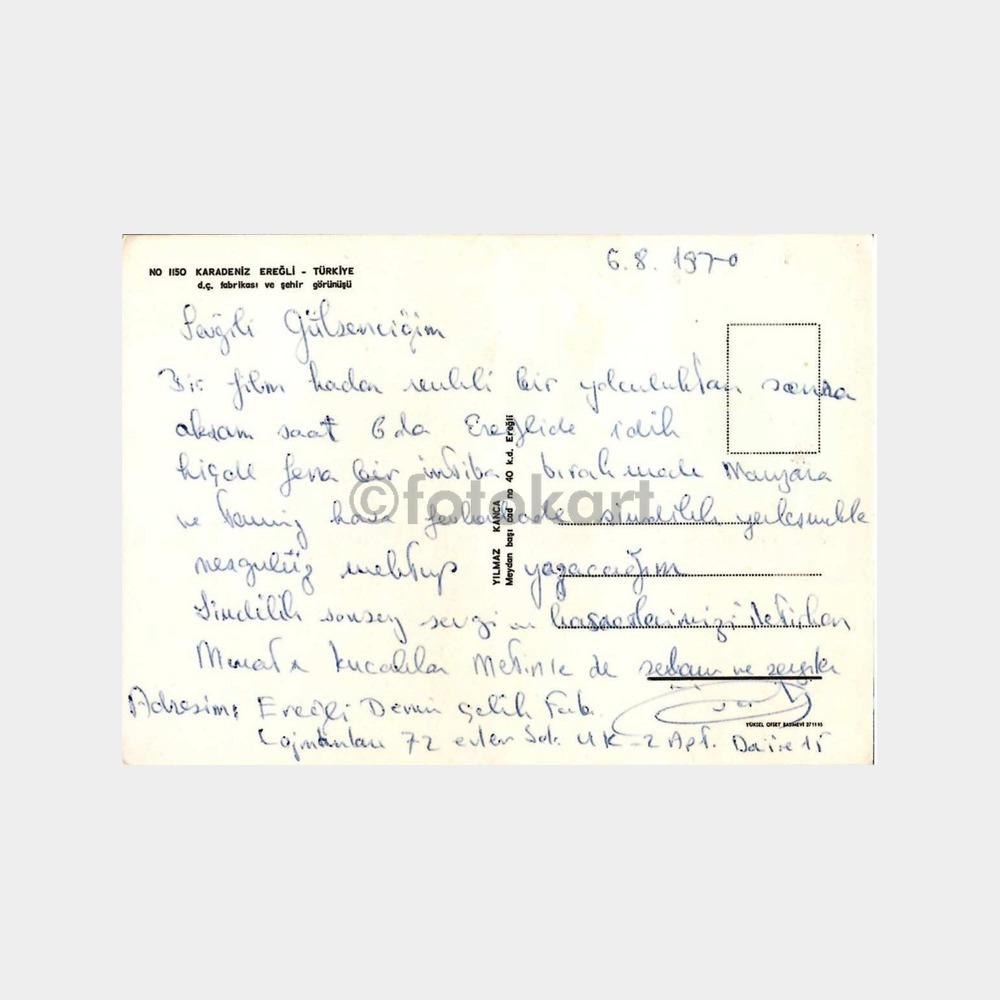 NO 1150 KARADENİZ EREĞLİ - TÜRKİYE
d.ç. fabrikası ve şehir görünüşü
6.8.1970
Sevgili Gülsenciğim
Bir film kadar renkli bir yolculuktan sonra
akşam saat 6 da Ereğlide idik
hiçde fena bir intiba bırakmadı Manzara
ve temiz hava şimdilik yerleşmekle
meşgulüz mektup yazacağım
Şimdilik sonsuz sevgi ve iletirken
Murat'ı kucaklar Metin'e de selam ve sevgiler
Adresim: Ereğli Demir Çelik Fab.
Lojmanları 72 evler Sok. UK-2 Apt. Daire 15
YILMAZ KANCA
Meydan başı cad no 40 k.d. Ereğli
©fotokart
YÜKSEL OFSET BASIMEVİ 271195